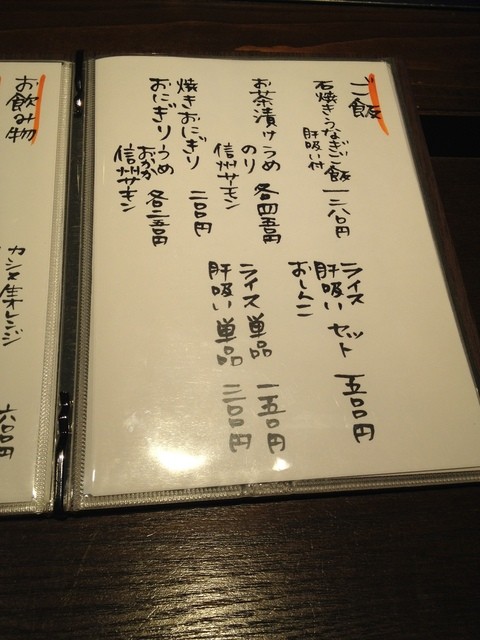 ご飯
石焼きうなぎご飯 一二八〇円
肝吸い付
お茶漬け うめ
のり 各四五〇円
信州サーモン
焼きおにぎり 二〇〇円
おにぎり うめ
おかか 各二五〇円
信州サーモン
ライス
肝吸い セット 五〇〇円
おしんこ
ライス 単品 一五〇円
肝吸い 単品 二〇〇円
お飲み物
オレンジ
六〇〇円